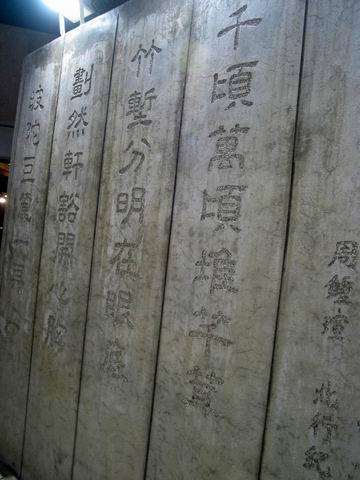 周鍾瑄
北行紀
千頃萬頃堆芊茸
竹塹分明在眼底
劃然軒豁開心胸
坡陀巨麓一